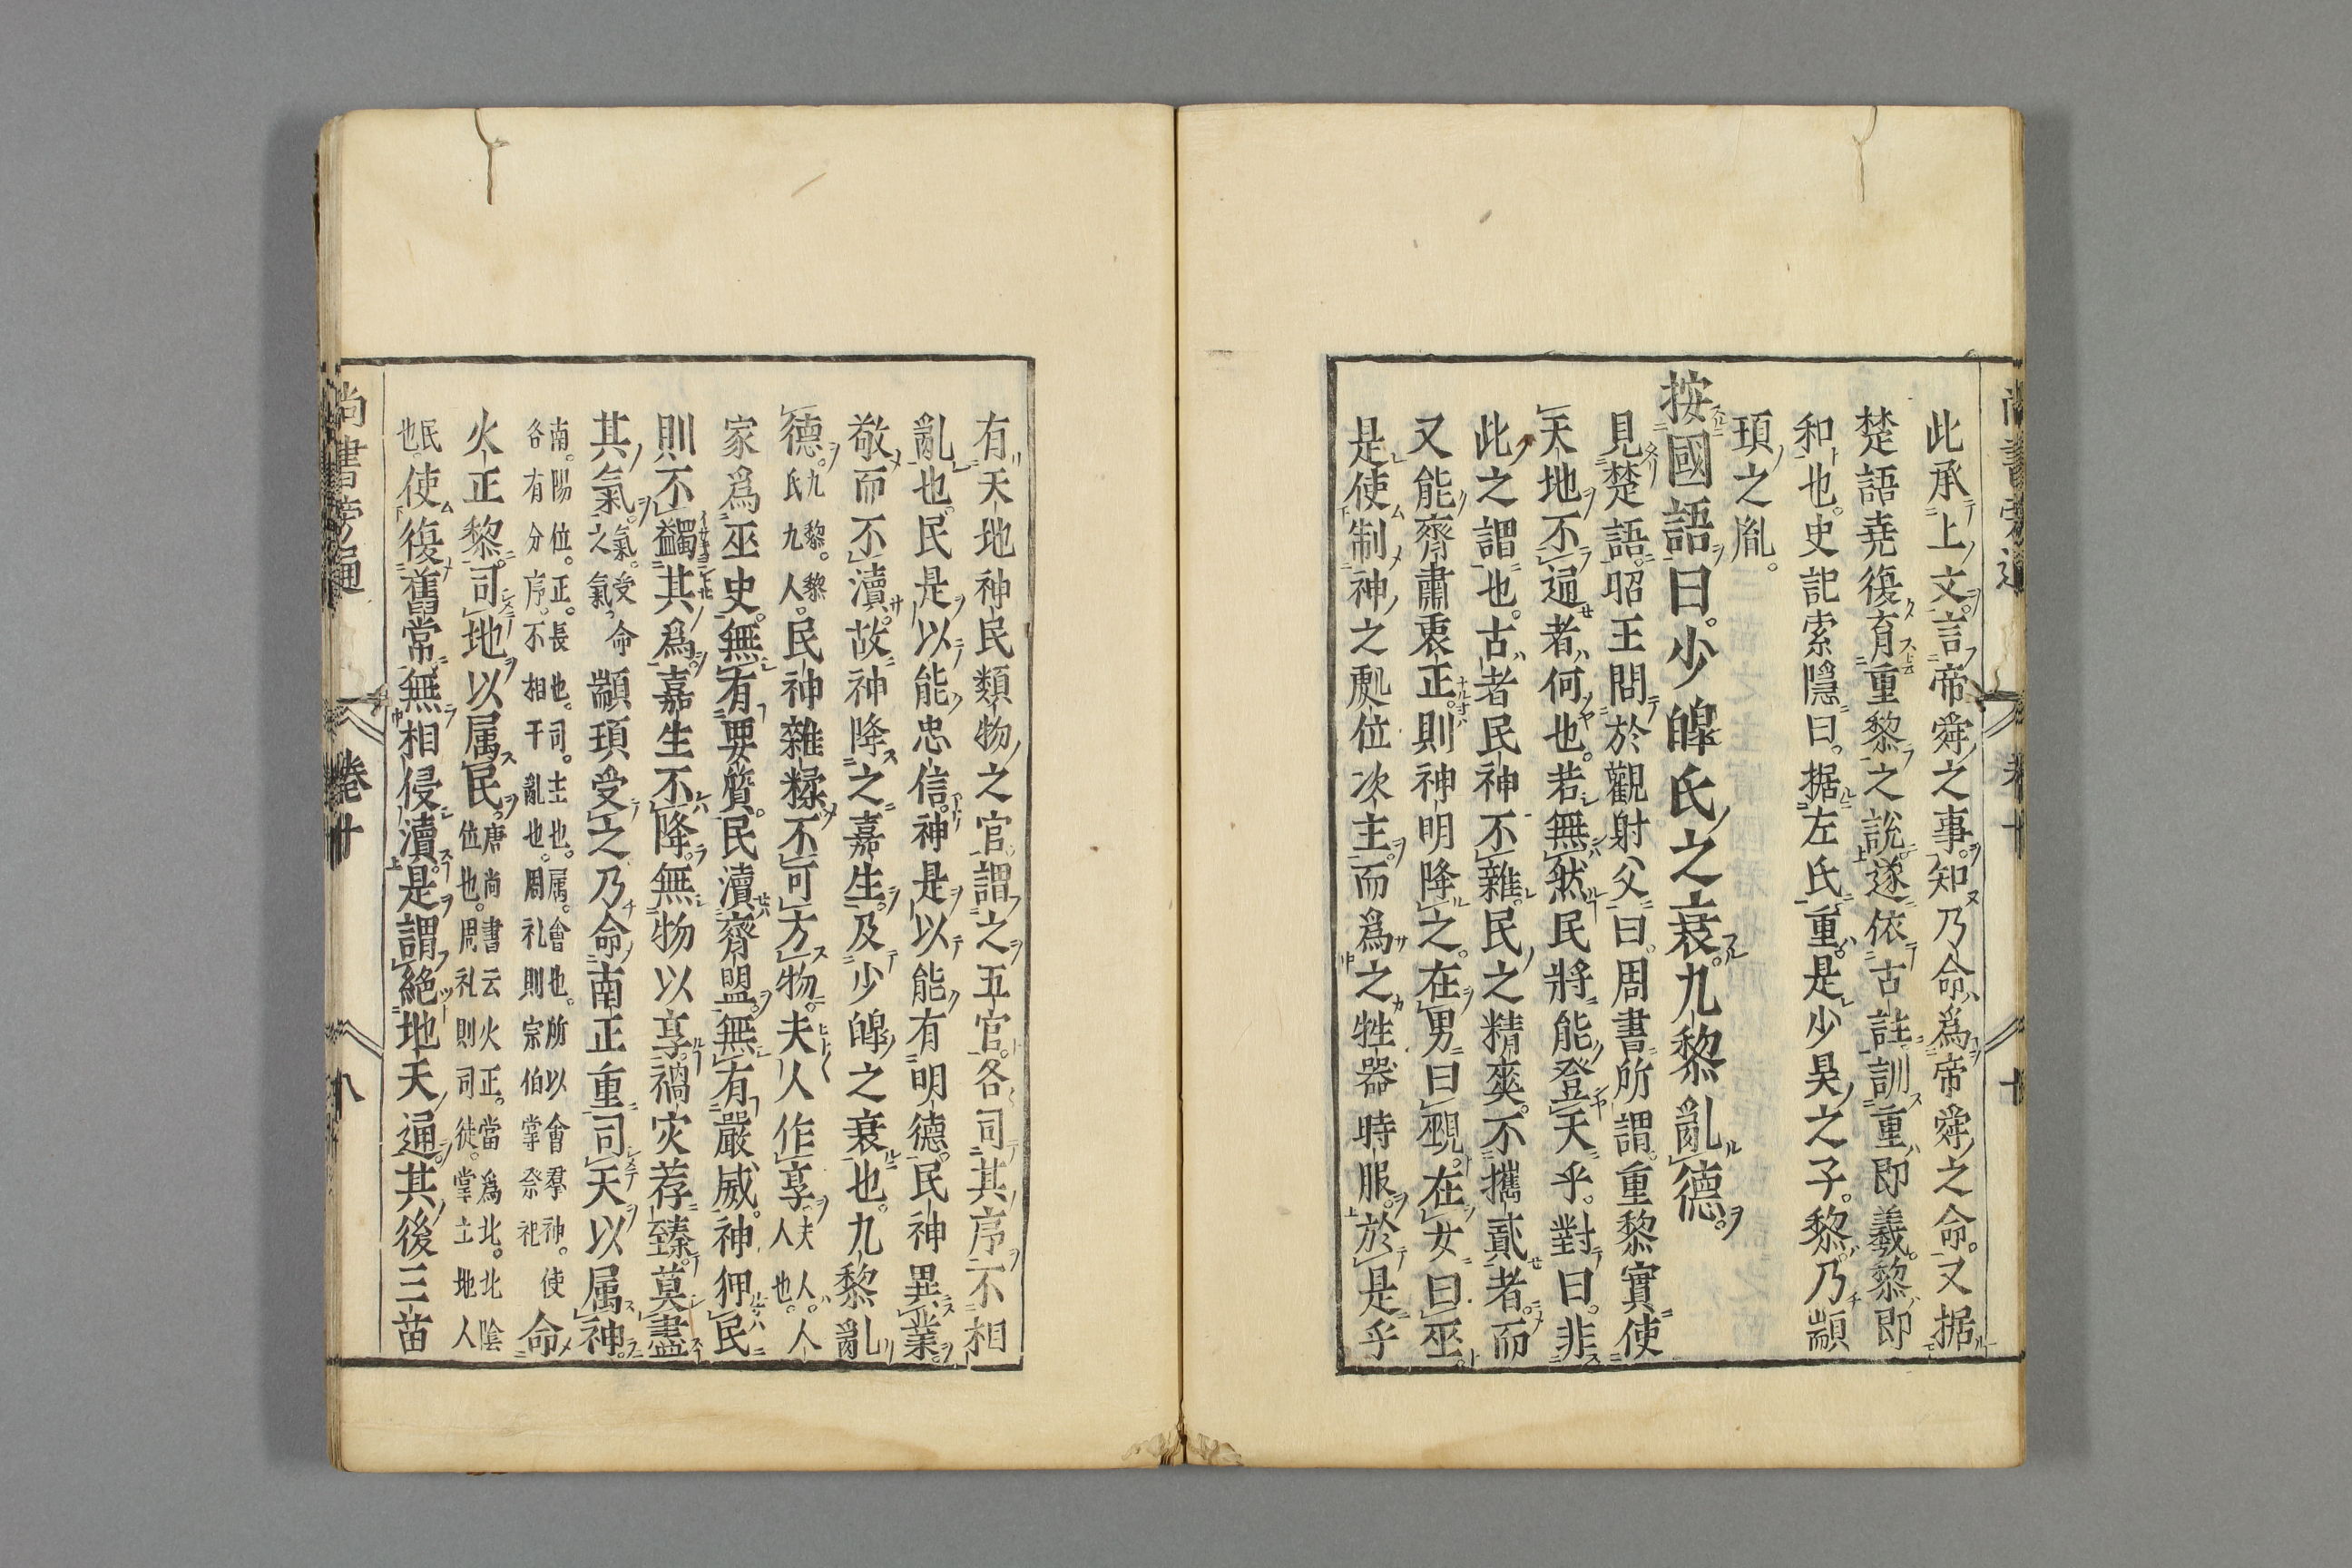 此承上文言帝舜之事知乃命為帝舜之命又据
楚語堯復育重黎之說遂依古註訓重即羲黎即
和也史記索隱曰据左氏重是少昊之子黎乃顓
頊之胤
按國語曰少皥氏之衰九黎亂德
見楚語昭王問於觀射父曰周書所謂重黎實使
天地不通者何也若無然民將能登天乎對曰非
此之謂也古者民神不雜民之精爽不攜貳者而
又能齊肅衷正則神明降之在男曰覡在女曰巫
是使制神之處位次主而爲之牲器時服於是乎
有天地神民類物之官謂之五官各司其序不相
亂也民是以能忠信神是以能有明德民神異業
敬而不瀆故神降之嘉生及少皥之衰也九黎亂
德九黎黎氏九人民神雜糅不可方物夫人作享夫人人人也
家爲巫史無有要質民瀆齊盟無有嚴威神狎民
則不蠲其爲嘉生不降無物以享禍灾荐臻莫盡
其氣氣受命之氣顓頊受之乃命南正重司天以属神
南陽位正長也司主也属會也所以會羣神使各有分序不相干亂也周礼則宗伯掌祭祀命
火正黎司地以属民唐尚書云火正當爲北北陰位也周礼則司徒掌土地人
民也使復舊常無相侵瀆是謂絕地天通其後三苗
尚書旁通
卷十
八